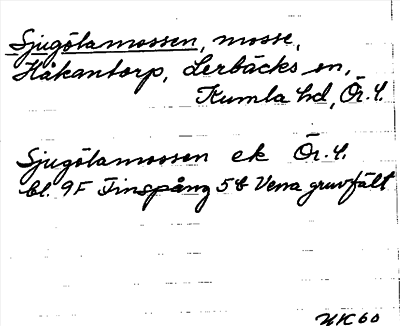 Sjugölamossen, mosse,
Håkantorp, Lerbäcks sn,
Kumla hd, Ör. l.
Sjugölamossen ek Ör. l.
bl. 9F Finspång 5 b Vena gruvfält
KK60